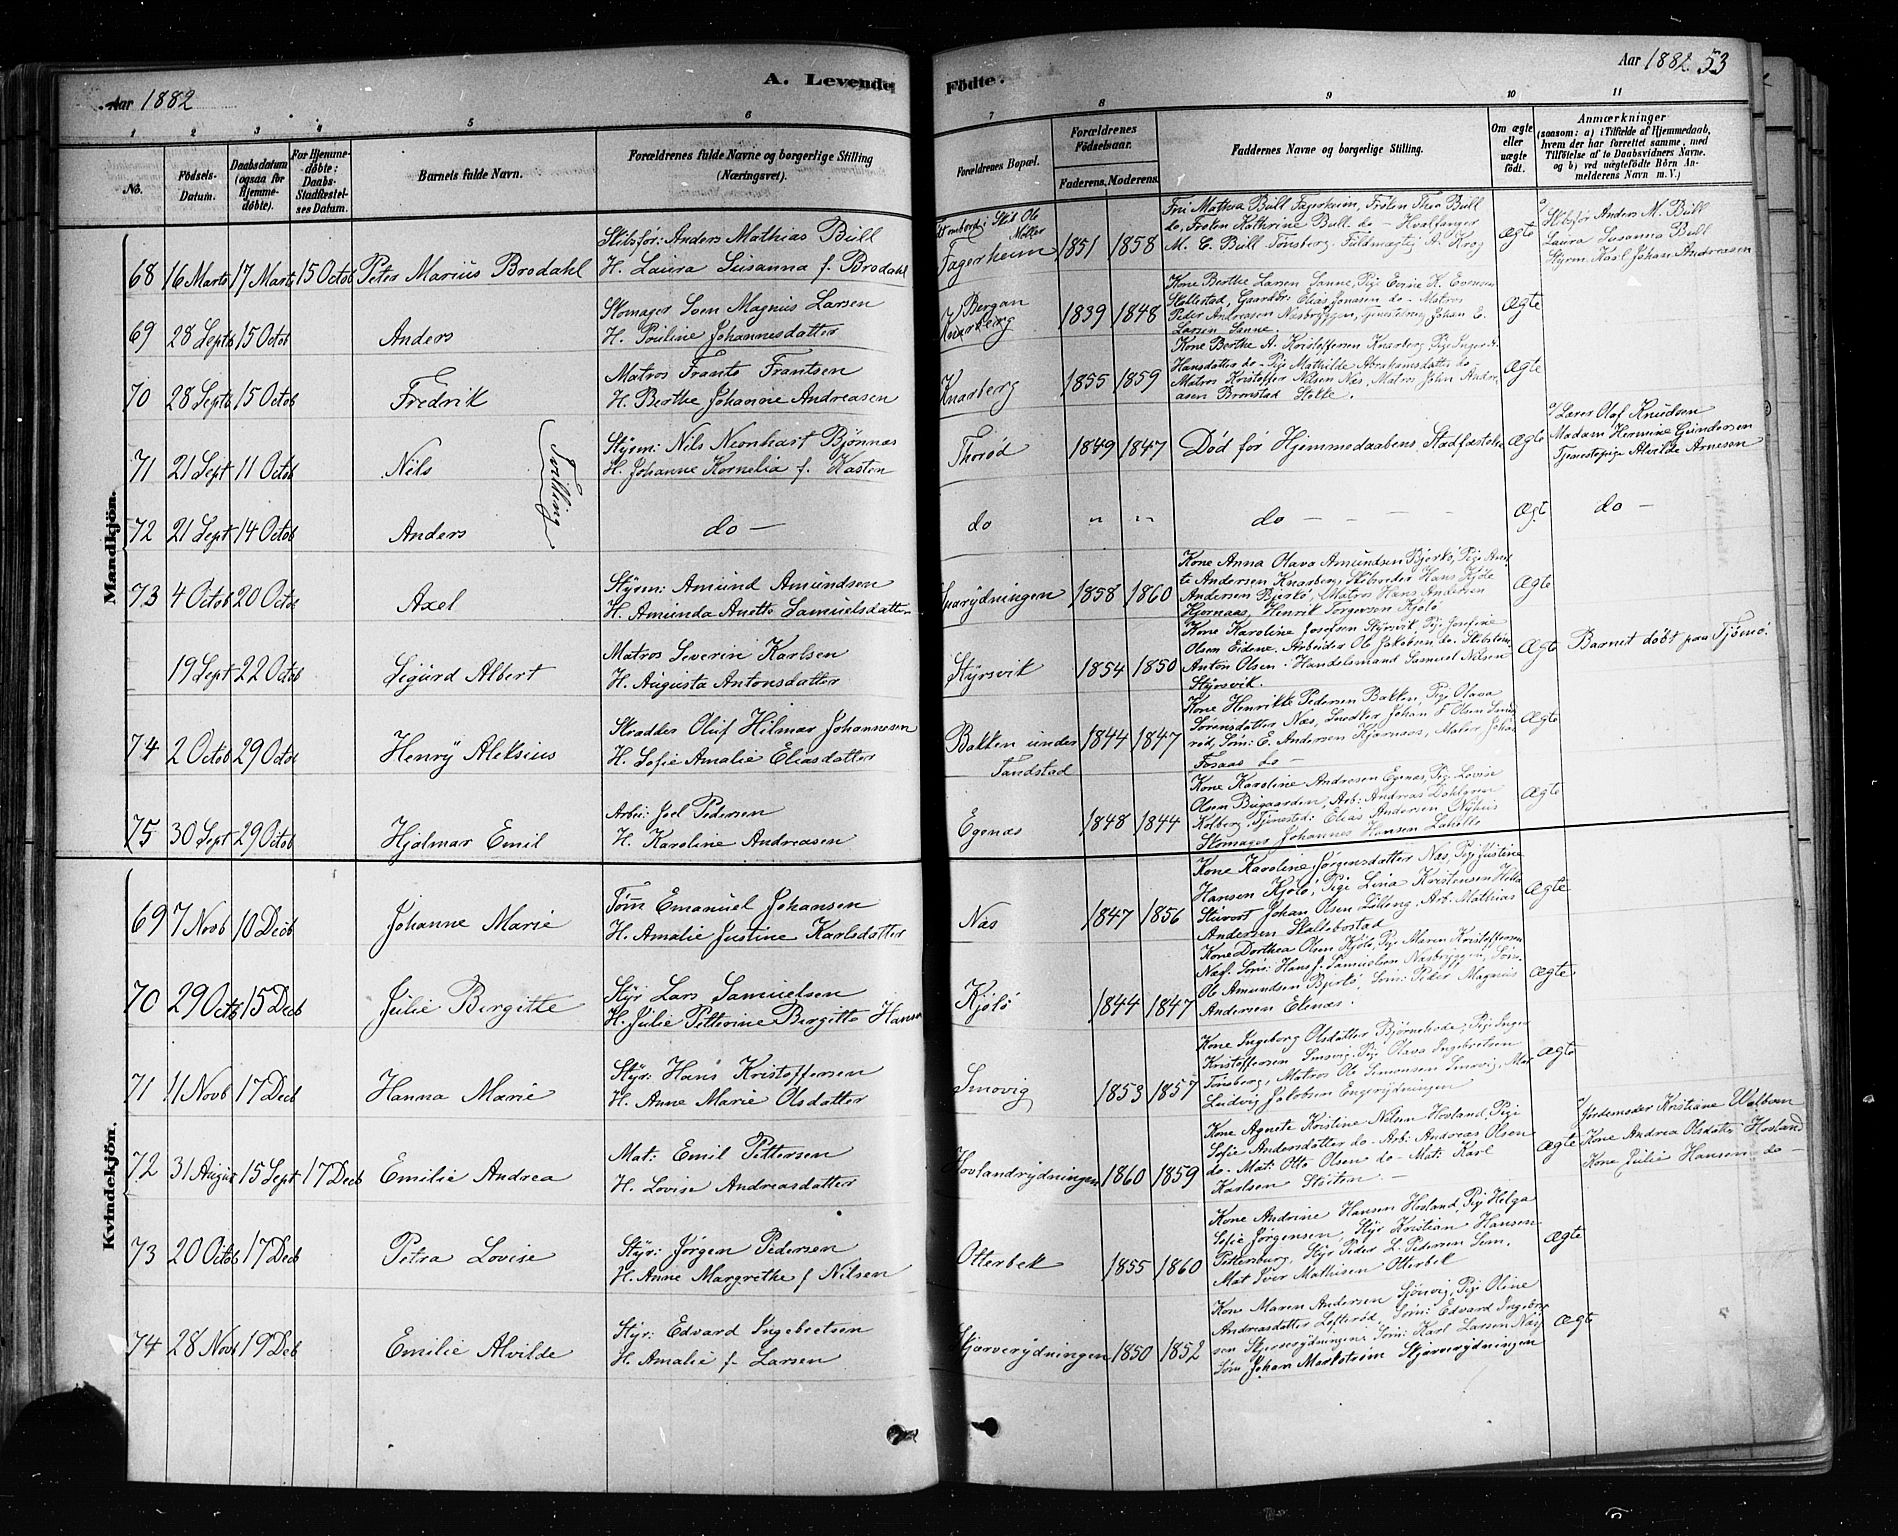 Aar 1882
A. Levende
Födte.
Aar 1882
53
1 2 3 4 5 6 7 8 9 10 11
No.
Födsels-Datum.
Daabsdatum (ogsaa for Hjemme-döbte).
For Hjemme-döbte: Daabs-Stadfæstel-ses Datum.
Barnets fulde Navn.
Forældrenes fulde Navne og borgerlige Stilling (Næringsvei).
Forældrenes Bopæl.
Forældrenes Födselsaar.
Faderens. Moderens.
Faddernes Navne og borgerlige Stilling.
Om ægte eller uægte födt.
Anmærkninger
(saasom: a) i Tilfælde af Hjemmedaab, hvem der har forrettet samme, med Tilföielse af to Daabsvidners Navne. og b) ved uægtefödte Börn An-melderens Navn m. V.)
Mandkjön.
68 16 Marts 17 Marts 15 Octob Peter Marius Brodahl
Skibsfør: Anders Mathias Bull
H. Laura Susanna f. Brodahl
Ombord i Skib. Ole Møller
Fagerheim 1851 1858
Fru Mathea Bull Fagerheim, Frøken Thea Bull
do, Frøken Kathrine Bull do - Hvalfanger
M. C. Bull Tønsberg, Fuldmægtig A. Krog
Ægte
Skibsfør Anders M. Bull
Laura Susanna Bull
Styrm. Karl Johan Andreasen
69 28 Septb 15 Octob Anders
Skomager Sven Magnus Larsen
H. Pouline Johannesdatter
Bergan
Knarberg 1839 1848
Kone Berthe Larsen Sanne, Pige K. Evensen
Stallestad, Gaardbr: Elias Jonassen do - Matros
Peder Andreasen Næsbryggen, Johan E.
Larsen Sanne.
Ægte
70 28 Septb 15 Octob Fredrik
Matros Frants Frantsen
H. Berthe Johanne Andreasen
Knarberg 1855 1859
Kone Berthe A. Kristoffersen Knarberg, Pige Inger A.
Hansdatter do - Pige Mathilde Abrahamsdatter do -
Matros Kristoffer Nilsen Næs, Matros John Andre-
asen Bronstad Stokke.
Ægte
71 21 Sept 11 Octob Nils
Tvilling
Styrm: Nils Neonhart Bjønnes
H. Johanne Kornelia f. Kasten
Thorød 1849 1847
Død før Hjemmedaabens Stadfæstelse
Ægte
Lærer Olaf Knudsen
Madam Hermine Gundersen
Tjenestepige Alvilde Arnesen
72 21 Sept 14 Octob Anders
do -
do " " do - - - -
Ægt
do -
73 4 Octob 20 Octob Axel
Styrm: Amund Amundsen
H. Amunda Anette Samuelsdatter
1858 1860
Kone Anna Olava Amundsen Bjerkø, Pige Anet-
te Andersen Knarberg, Skibsreder Hans Kjøle
Andersen Bjerkø, Matros Hans Andersen
Kjernaas, Henrik Torgersen Kjølø
Ægte
19 Sept 22 Octob Sigurd Albert
Matros Severin Karlsen
H. Augusta Antonsdatter
Styrsvik 1854 1850
Kone Karoline Josefsen Styrsvik Pige Josefine
Olsen Eidene, Arbeider Ole Jakobsen do -
Anton Olsen - Handelsmand Samuel Nilsen
Styrsvik.
Ægt
Barnet døbt paa Tjømø.
74 2 Octob 29 Octob Henry Aleksius
Skradder Oluf Hilmar Johannesen
H. Sofie Amalie Eliasdatter
Bakken under
Tandstad 1844 1847
Kone Henrikke Pedersen Bakken, Pige Olava
Sørensdatter Næs, Snedker Johan F. Olsen
rød, Søm: E. Andersen Kjærnaas, Maler Johan
Fosaas do -
Ægte
75 30 Sept 29 Octob Hjalmar Emil
Arbei: Joel Pedersen
H. Karoline Andreasen
Egenæs 1848 1844
Kone Karoline Andresen Egenæs, Pige Lovise
Olsen Bugaarden, Arb: Andreas Dahlgren
Kolberg, Tjenested: Elias Andersen Nyhus
Skomager Johannes Hansen
Ægte
Kvindekjön.
69 7 Novb 10 Decb Johanne Marie
Tøm Emanuel Johansen
H. Amalie Justine Karlsdatter
Næs 1847 1856
Kone Karoline Jørgensdatter Næs, Pige Justine
Hansen Kjølø, Pige Lina Kristensen
Stuvert Johan Olsen, Arb. Mathias
Andersen
Ægte
70 29 Octb 15 Decb Julie Birgitte
Styr Lars Samuelsen
H. Julie Petterine Birgitte Hansen
Kjølø 1844 1847
Kone Dorthea Olsen Kjølø, Pige Maren Kristoffersen
Næs. Søm: Hans J. Samuelsen Næsbryggen, Søm:
Ole Amundsen Bjerkø, Søm: Peder Magnus
Andersen Ekenæs.
Ægte
71 11 Novb 17 Decb Hanna Marie
Styr: Hans Kristoffersen
H. Anne Marie Olsdatter
Smovig 1853 1857
Kone Ingeborg Olsdatter, Pige Inger
Kristoffersen Smovig, Pige Olava Ingebretsen
Tønsberg, Matros Ole Simonsen Smovig, Mat
Ludvig Jakobsen Engrydningen
Ægte
72 31 August 15 Sept 17 Decb Emilie Andrea
Mat: Emil Pettersen
H. Lovise Andreasdatter
Hovlandrydningen 1860 1859
Kone Agnete Kristine Nilsen Hovland, Pige
Sofie Andersdatter do - Arb: Andreas Olsen
do - Mat: Otto Olsen do - Mat: Karl
Karlsen
Ægte
Jordemoder Kristiane Walbom
Kone Andrea Olsdatter Hovland
Kone Julie Hansen do -
73 20 Octob 17 Decb Petra Lovise
Styr: Jørgen Pedersen
H. Anne Margrethe f Nilsen
Otterbek 1855 1860
Kone Andrine Hansen Hovland, Pige Helga
Sofie Jørgensen, Styr Kristian Hansen
Pettersborg, Styr Peder L. Pedersen Sem,
Mat Iver Mathisen Otterbek
Ægte
74 28 Novb 19 Decb Emilie Alvilde
Styr: Edvard Ingebretsen
H. Amalie f. Larsen
Skjærverydningen 1850 1852
Kone Maren Andersen Sjøvig, Pige Oline
Andreasdatter Løfterød, Søm: Edvard Ingebret-
sen Skjærverydningen, Søm: Karl Larsen Næs
Søm Johan Markstrøm Skjærverydningen
Ægte